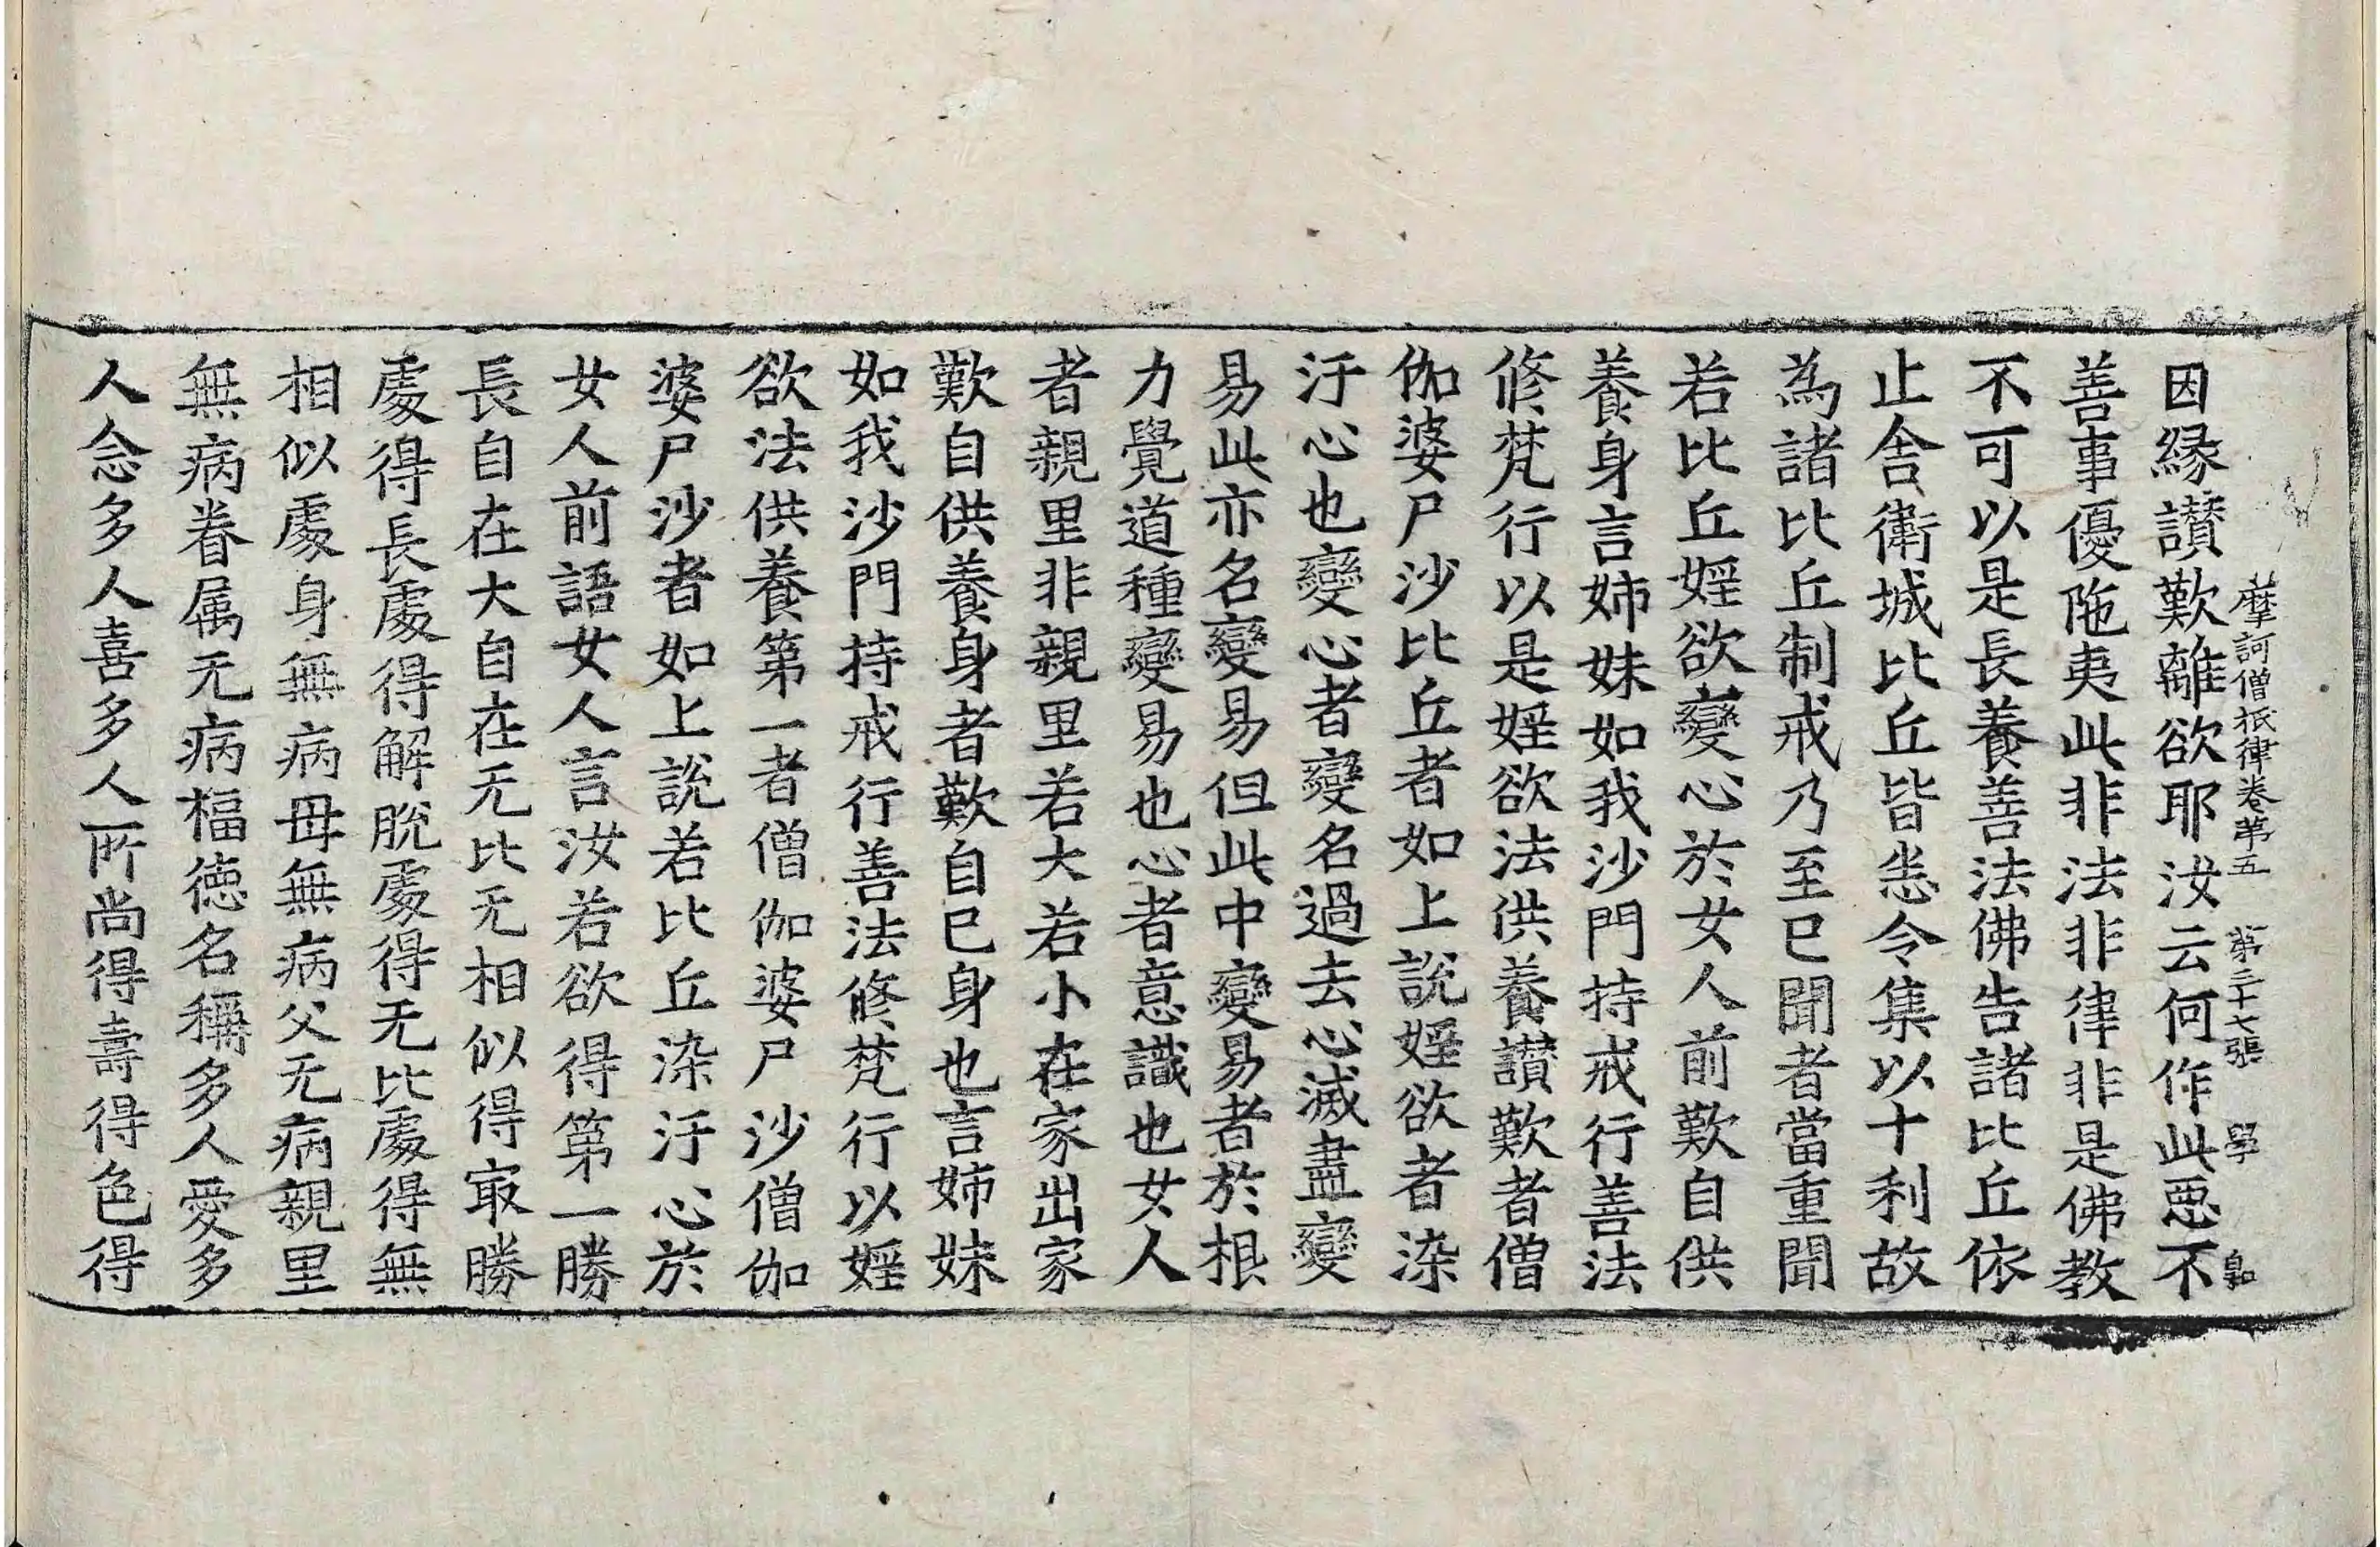 摩訶僧祇律卷第五 第二十七張 學
因縁讃歎離欲耶汝云何作此惡不
善事優陁夷此非法非律非是佛教
不可以是長養善法佛告諸比丘依
止舍衛城比丘皆悉令集以十利故
為諸比丘制戒乃至已聞者當重聞
若比丘婬欲變心於女人前歎自供
養身言姉妹如我沙門持戒行善法
修梵行以是婬欲法供養讃歎者僧
伽婆尸沙比丘者如上說婬欲者染
汙心也變心者變名過去心滅盡變
易此亦名變易但此中變易者於根
力覺道種變易也心者意識也女人
者親里非親里若大若小在家出家
歎自供養身者歎自已身也言姉妹
如我沙門持戒行善法修梵行以婬
欲法供養第一者僧伽婆尸沙僧伽
婆尸沙者如上說若比丘染汙心於
女人前語女人言汝若欲得第一勝
長自在大自在无比无相似得冣勝
處得長處得解脫處得无比處得無
相似處身無病母無病父无病親里
無病眷属无病福德名稱多人愛多
人念多人喜多人所尚得壽得色得